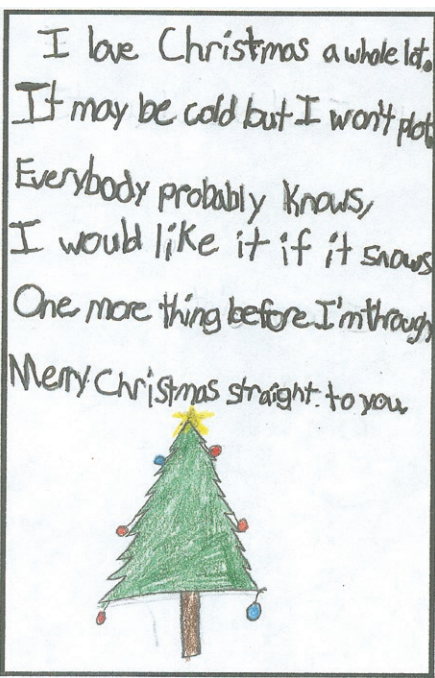 I love Christmas a whole lot.
It may be cold but I won't plot.
Everybody probably knows,
I would like it if it snows
One more thing before I'm through,
Merry Christmas straight to you